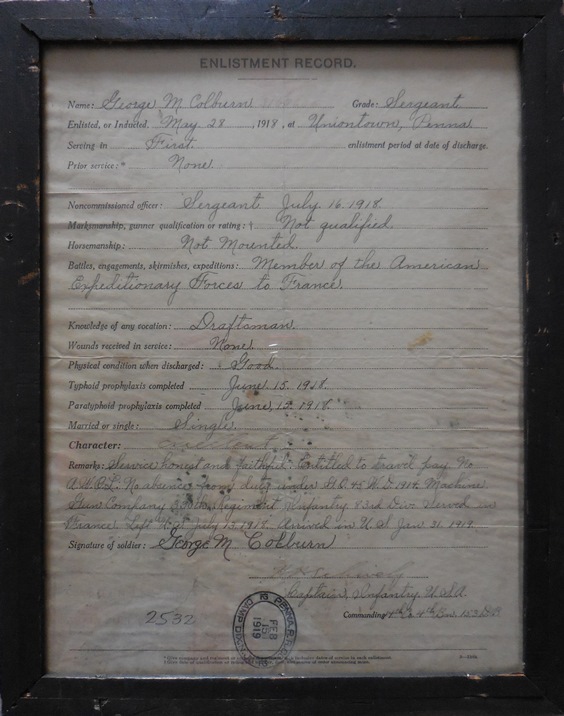 ENLISTMENT RECORD.
Name: George M Colburn Grade: Sergeant
Enlisted, or Inducted, May 28, 1918, at Uniontown, Penna
Serving in First enlistment period at date of discharge.
Prior service:* None
Noncommissioned officer: Sergeant July 16, 1918
Marksmanship, gunner qualification or rating:† Not qualified.
Horsemanship: Not Mounted.
Battles, engagements, skirmishes, expeditions: Member of the American
Expeditionary Forces to France.
Knowledge of any vocation: Draftsman.
Wounds received in service: None.
Physical condition when discharged: Good.
Typhoid prophylaxis completed June 15, 1918.
Paratyphoid prophylaxis completed June 12 1918.
Married or single: Single.
Character: excellent
Remarks: Service honest and faithful; Entitled to travel pay No
A.W.O.L. No absence from duty under G.O. 45 W.D. 1914. Machine
Gun Company Regiment Infantry 83rd Div. Served in
France. Left July 1918. Arrived in U.S. Jan. 31, 1919
Signature of soldier: George M. Colburn
Captain, Infantry U.S.A.
2532
Commanding 4th Bn. 153 D.B.
FEB
1919